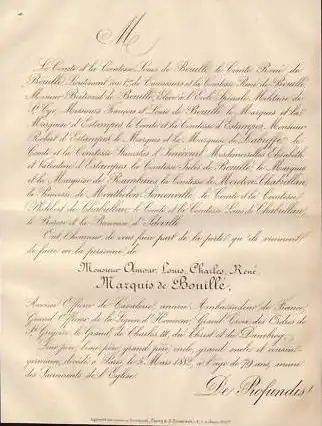 M
Le Comte et la Comtesse Louis de Bouillé, le Comte René de
Bouillé, Lieutenant au de et la Comtesse René de Bouillé,
Monsieur Bertrand de Bouillé, Elève à l'Ecole Spéciale Militaire de
St Cyr, Messieurs François et Louis de Bouillé, le Marquis et la
Marquise d'Estampes, le Comte et la Comtesse d'Estampes, Monsieur
Robert d'Estampes, le Marquis et la Marquise de
Comte et la Comtesse d' Mesdemoiselles Elisabeth
et Valentine d'Estampes, la Comtesse Jules de Bouillé, le Marquis
et la Marquise de Rambures, la Comtesse de Moreton Chabrillan,
la Princesse de Montholon Sémonville, le Comte et la Comtesse
de Chabrillan, le Comte et la Comtesse Louis de Chabrillan,
le Baron et la Baronne d'Ideville
Ont l'honneur de vous faire part de la perte qu'ils viennent
de faire en la personne de
Monsieur Amour, Louis, Charles, René,
Marquis de Bouillé,
Ancien Officier de Cavalerie, ancien Ambassadeur de France,
Grand Officier de la Légion d'Honneur, Grand Croix des Ordres de
St Grégoire le Grand, de Charles III, du Christ et du Danebrog,
Leur père, beau-père, grand père, oncle, grand oncle et cousin-
germain, décédé à Paris le 5 Mars 1882, à l'âge de 79 ans, muni
des Sacrements de l'Eglise.
De Profundis!